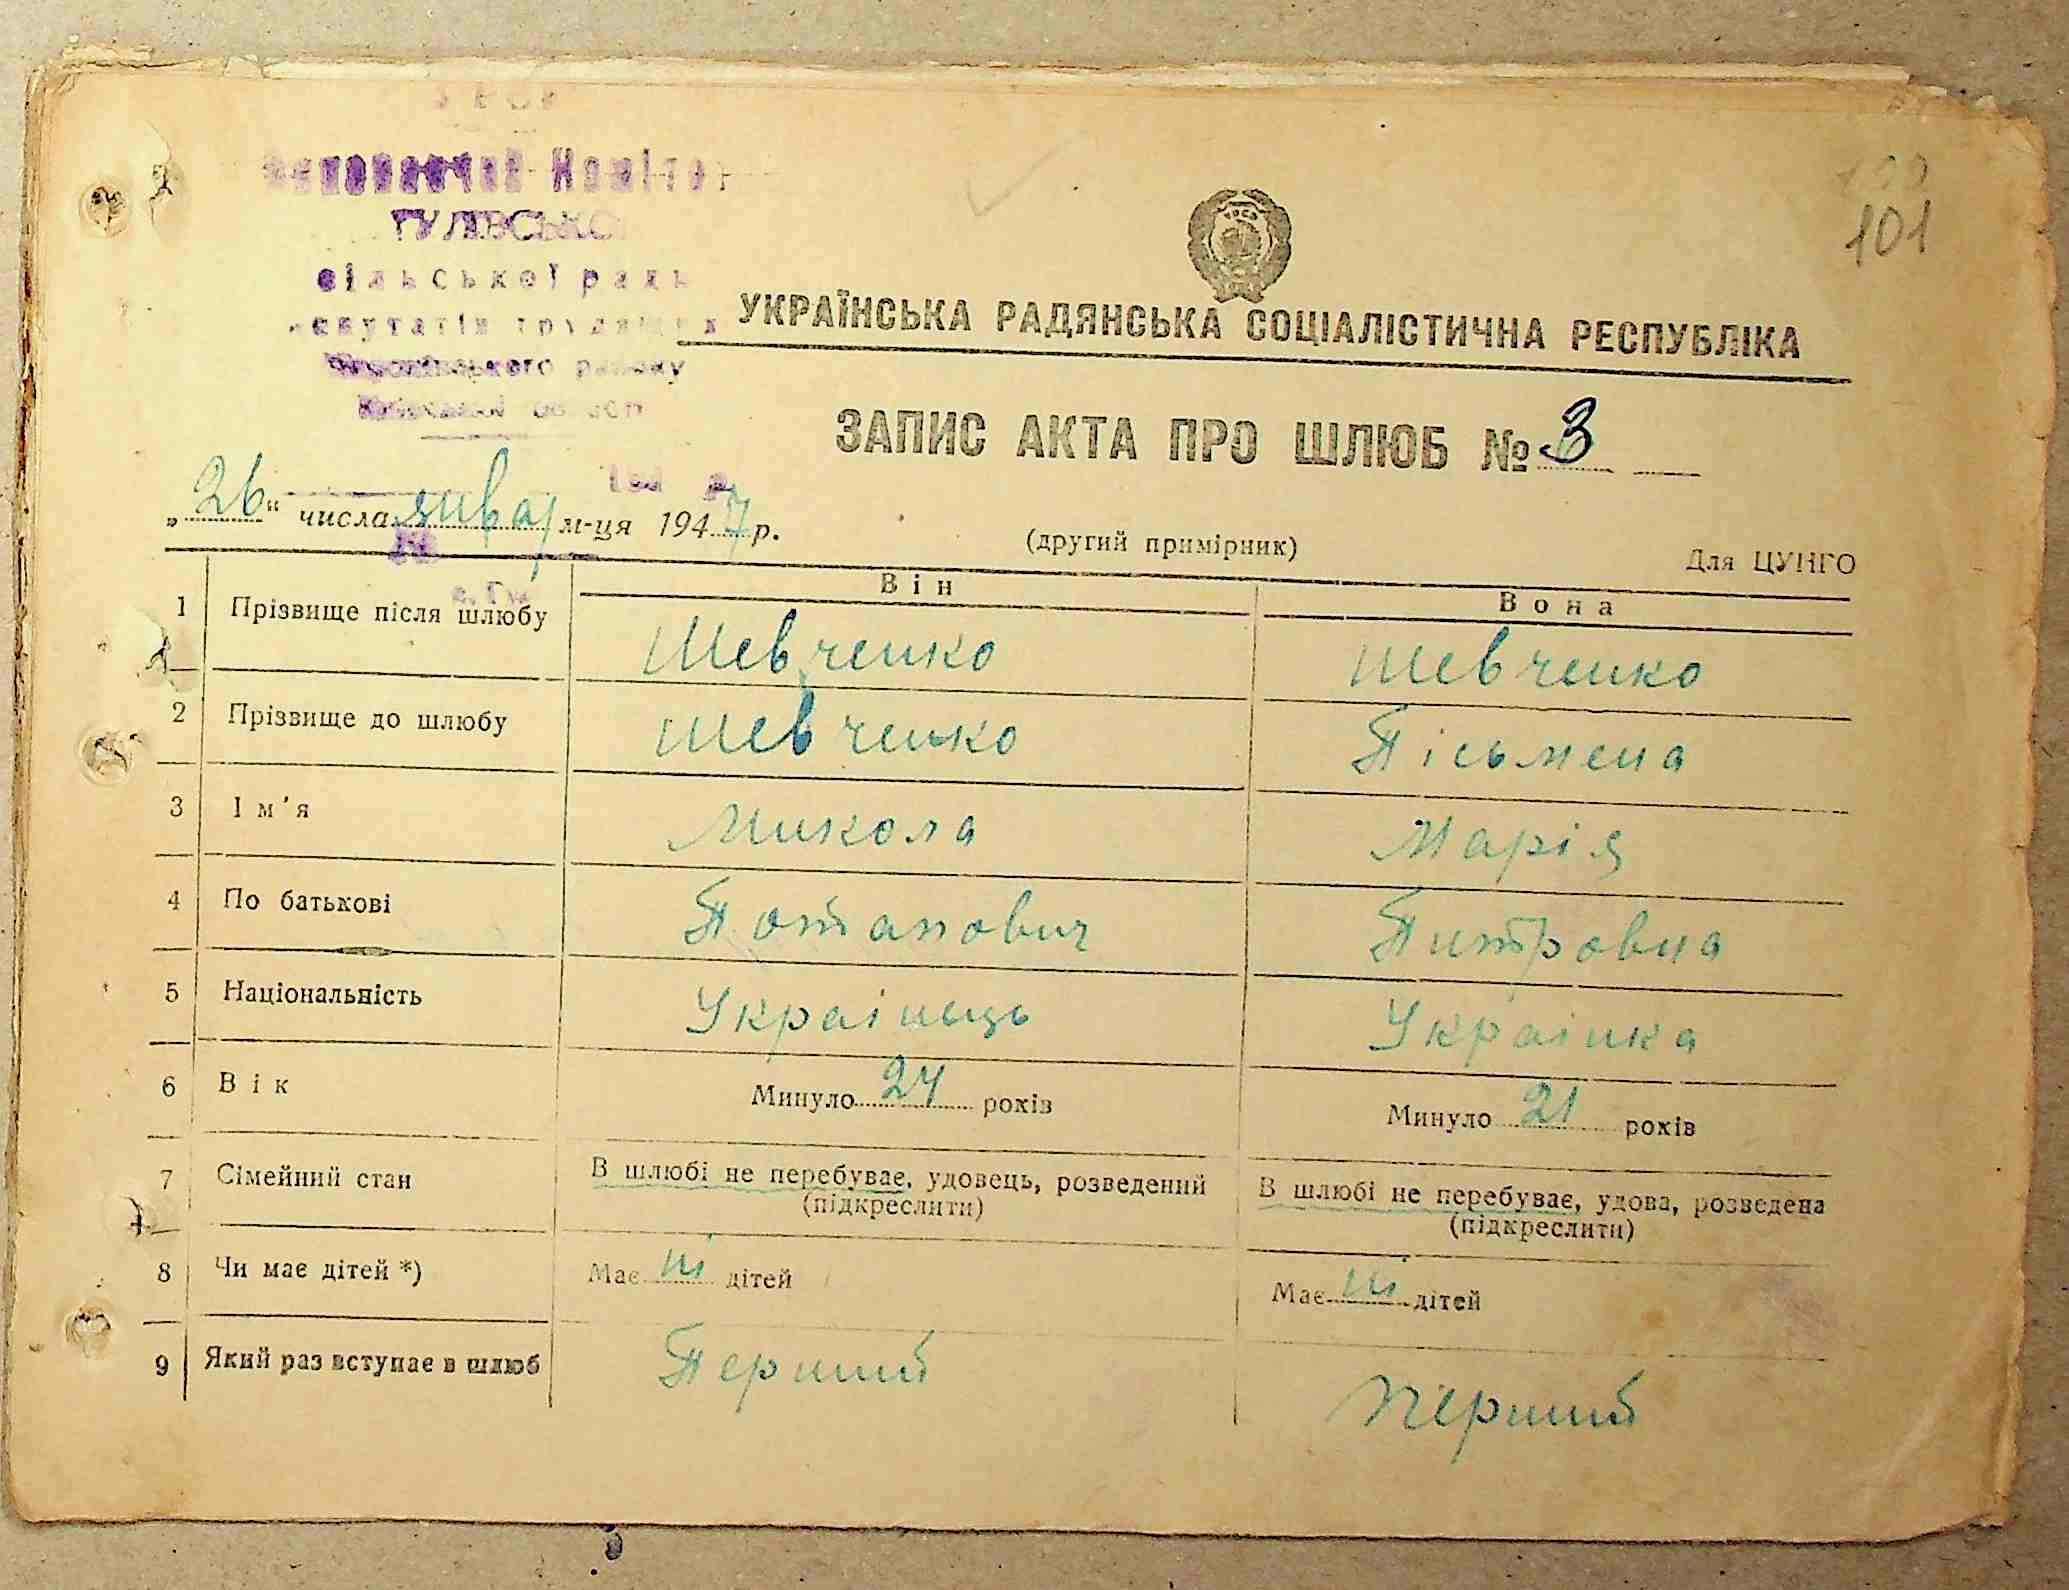 ГУЛІВСЬКО
сільської рад
101
УКРАЇНСЬКА РАДЯНСЬКА СОЦІАЛІСТИЧНА РЕСПУБЛІКА
ЗАПИС АКТА ПРО ШЛЮБ № 3
„26“ числа январ м-ця 1947 р.
(другий примірник)
Для ЦУНГО
Він Вона
1 Прізвище після шлюбу Шевченко Шевченко
2 Прізвище до шлюбу Шевченко Пісьмена
3 Ім'я Микола Марія
4 По батькові Потапович Питровна
5 Національність Украінець Украінка
6 Вік Минуло 24 років Минуло 21 років
7 Сімейний стан В шлюбі не перебуває, удовець, розведений (підкреслити) В шлюбі не перебуває, удова, розведена (підкреслити)
8 Чи має дітей *) Має ні дітей Має ні дітей
9 Який раз вступає в шлюб Перший Перший